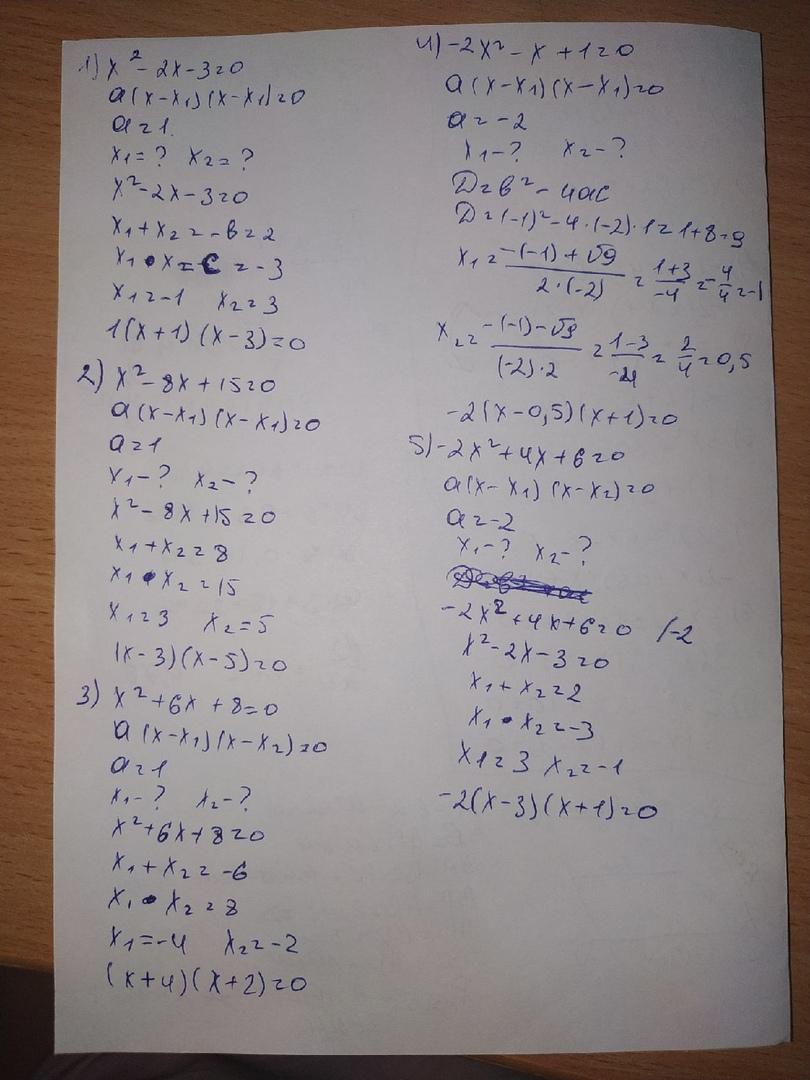 1) x² - 2x - 3 = 0
a(x-x₁)(x-x₁) = 0
a = 1.
x₁ = ? x₂ = ?
x² - 2x - 3 = 0
x₁ + x₂ = -в = 2
x₁ • x = c = -3
x₁ = -1 x₂ = 3
1(x+1)(x-3) = 0
2) x² - 8x + 15 = 0
a(x-x₁)(x-x₁) = 0
a = 1
x₁ - ? x₂ - ?
x² - 8x + 15 = 0
x₁ + x₂ = 8
x₁ • x₂ = 15
x₁ = 3 x₂ = 5
(x-3)(x-5) = 0
3) x² + 6x + 8 = 0
a(x-x₁)(x-x₂) = 0
a = 1
x₁ - ? x₂ - ?
x² + 6x + 8 = 0
x₁ + x₂ = -6
x₁ • x₂ = 8
x₁ = -4 x₂ = -2
(x+4)(x+2) = 0
4) -2x² - x + 1 = 0
a(x-x₁)(x-x₁) = 0
a = -2
x₁ - ? x₂ - ?
D = в² - 4ac
D = (-1)² - 4·(-2)·1 = 1+8 = 9
x₁ = (-(-1)+√9)/(2·(-2)) = (1+3)/(-4) = -4/4 = -1
x₂ = (-(-1)-√9)/((-2)·2) = (1-3)/(-4) = 2/4 = 0,5
-2(x-0,5)(x+1) = 0
5) -2x² + 4x + 6 = 0
a(x-x₁)(x-x₂) = 0
a = -2
x₁ - ? x₂ - ?
-2x² + 4x + 6 = 0 /-2
x² - 2x - 3 = 0
x₁ + x₂ = 2
x₁ • x₂ = -3
x₁ = 3 x₂ = -1
-2(x-3)(x+1) = 0